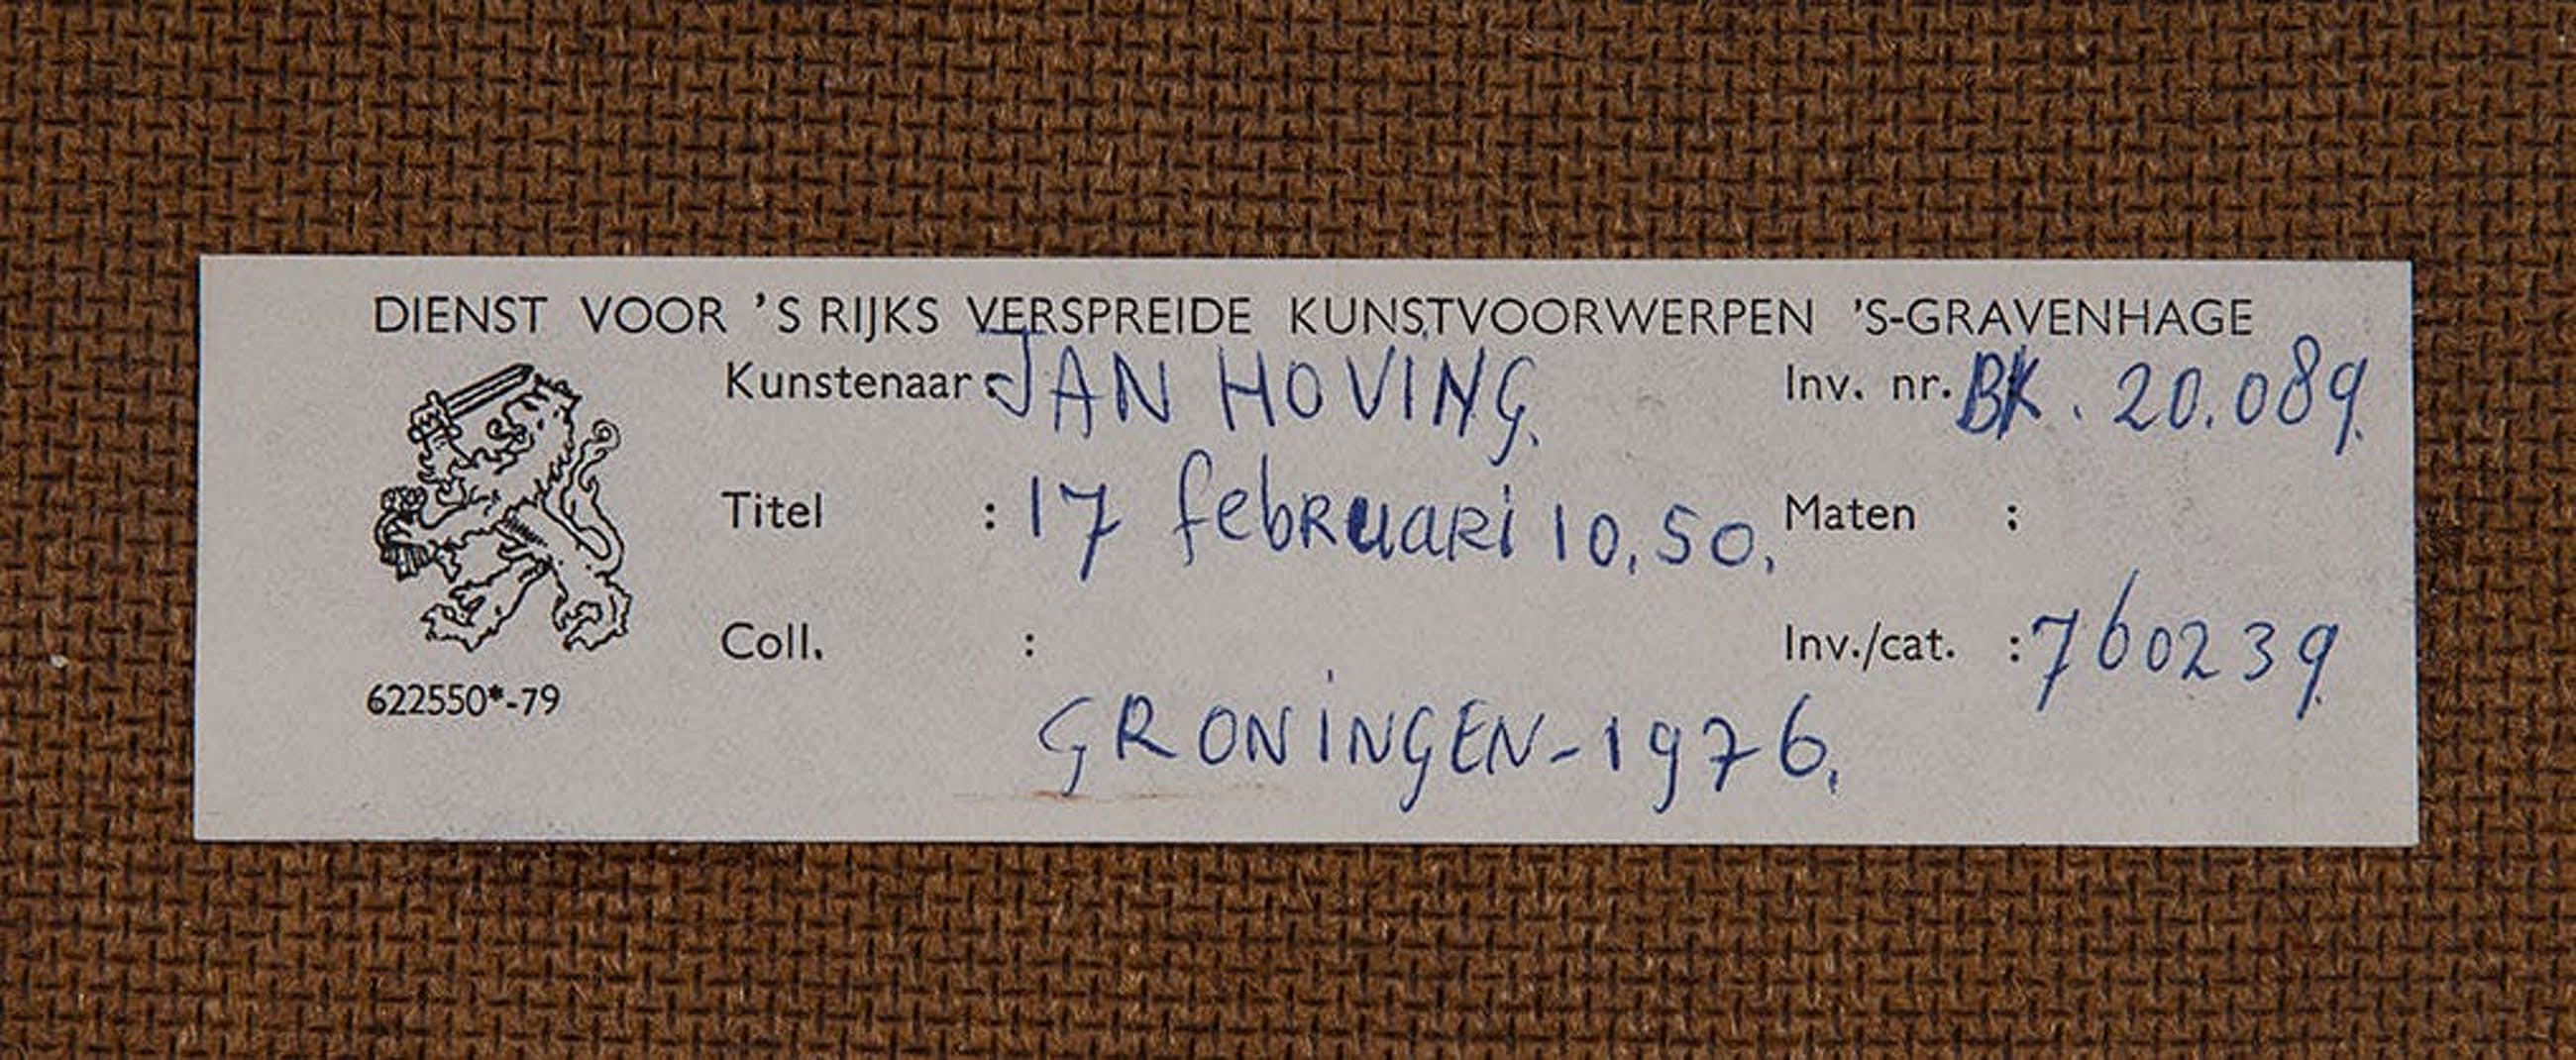 DIENST VOOR 'S RIJKS VERSPREIDE KUNSTVOORWERPEN 'S-GRAVENHAGE
Kunstenaar: JAN HOVING. Inv. nr. BK. 20.089.
Titel : 17 februari 10.50. Maten :
Coll. : Inv./cat. : 760239.
622550*-79
GRONINGEN-1976.